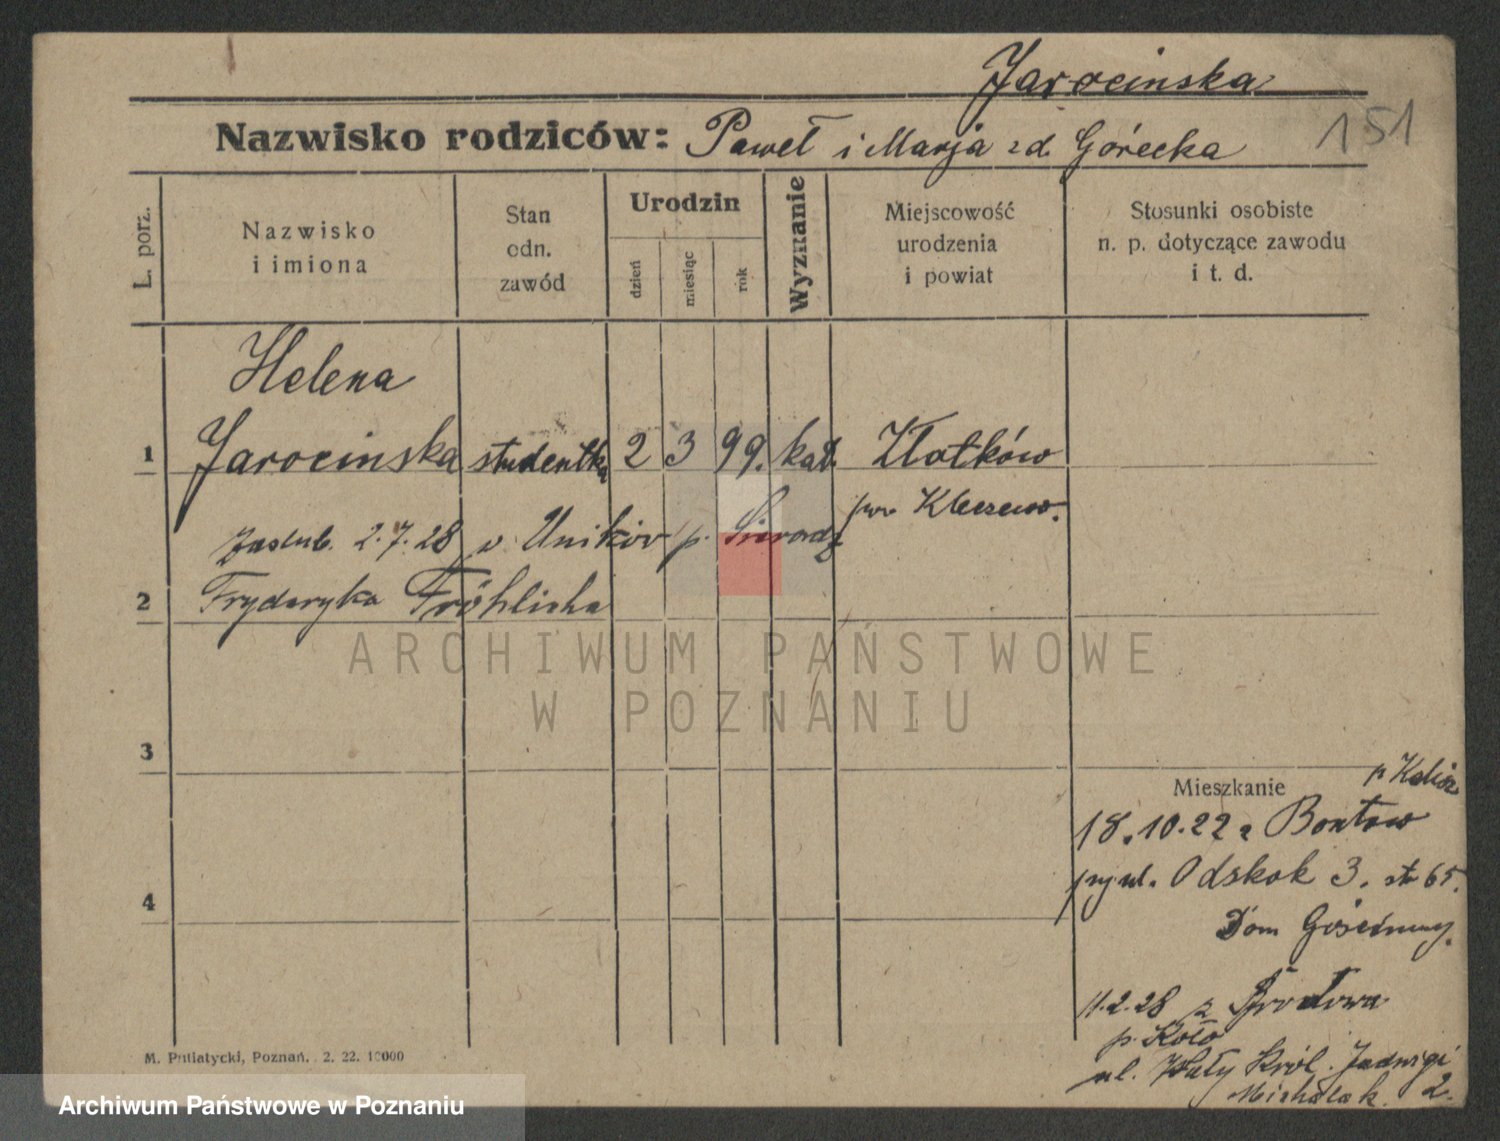 Jarocinska
Nazwisko rodziców: Paweł i Marja zd. Górecka
151
L. porz.
Nazwisko
i imiona
Stan
odn.
zawód
Urodzin
dzień
miesiąc
rok
Wyznanie
Miejscowość
urodzenia
i powiat
Stosunki osobiste
n. p. dotyczące zawodu
i t. d.
Helena
1 Jarocinska studentka 2 3 99. kat. Złotków
pow.
zaślub. 2.7.28 v. Uników p. Sieradz
2 Fryderyka Fröhlicha
ARCHIWUM PAŃSTWOWE
W POZNANIU
3
Mieszkanie
p. Kalisz
18.10.22 z
przy ul. Odskok 3. str 65.
4
Dom Gościnny.
11.2.28 z
p. Koło
ul. Wały Król. Jadwigi
Michalak. 2.
M. Putiatycki, Poznań. 2. 22. 10000
Archiwum Państwowe w Poznaniu